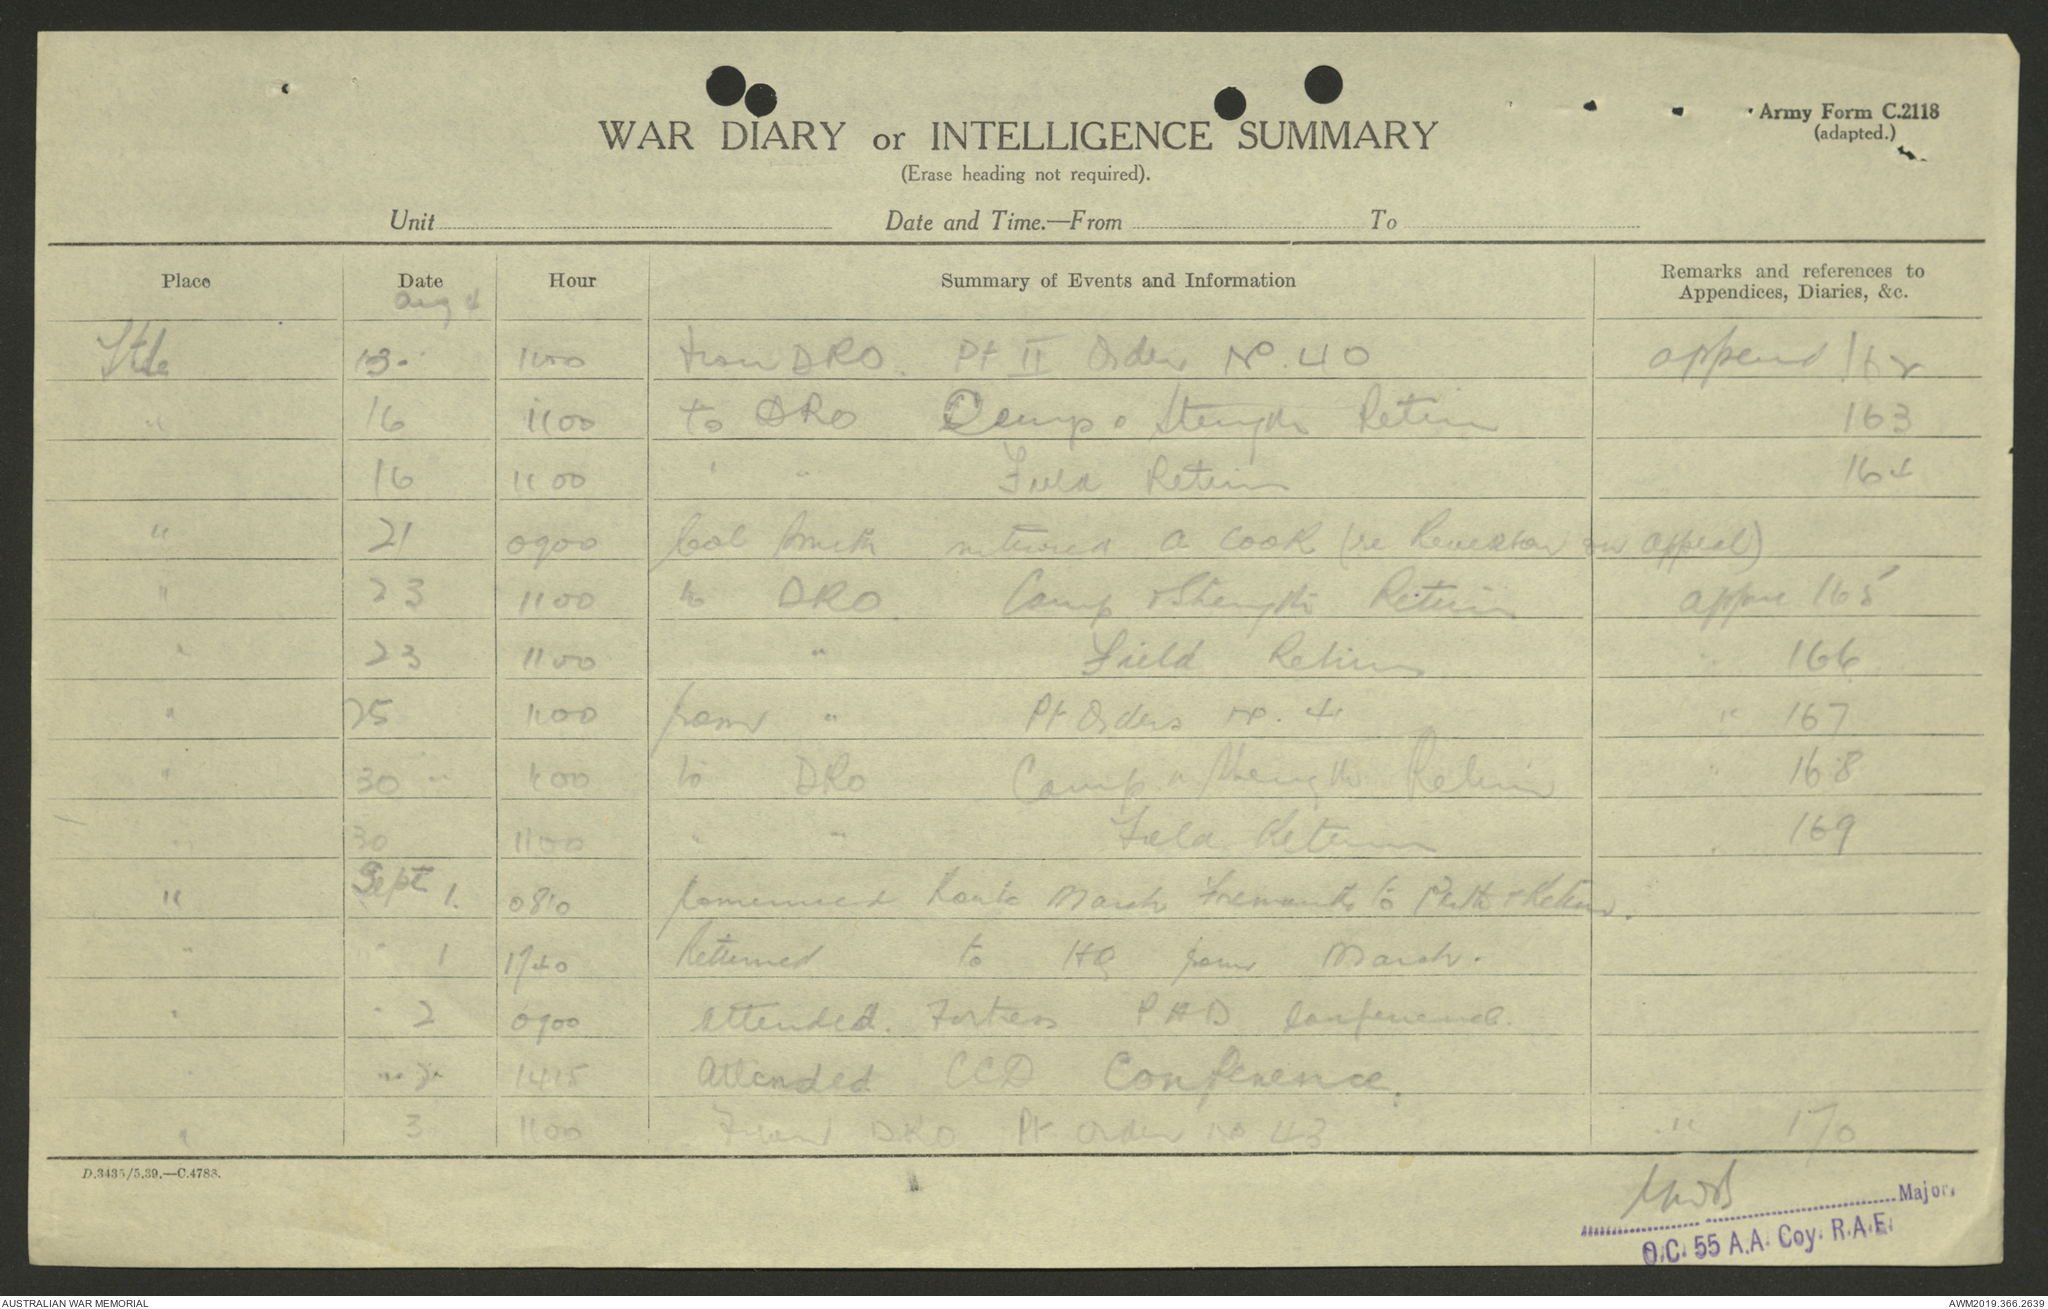 Army Form C.2118
(adapted.)
WAR DIARY or INTELLIGENCE SUMMARY
(Erase heading not required).
Unit Date and Time.—From To
Place Date Hour Summary of Events and Information Remarks and references to Appendices, Diaries, &c.
Aug 4
13 1100 from DRO. Pt II Order No. 40 append 162
" 16 1100 to DRO Camp & Strength Return 163
16 1100 " " Field Return 164
" 21 0900 Smith a cook (re on appeal)
" 23 1100 to DRO Camp & Strength Return appen 165
" 23 1100 " Field Return " 166
" 25 1100 from " Pt Orders No. 41 " 167
" 30 1100 to DRO Camp & Strength Return " 168
" 30 1100 " " Field Return " 169
" Sept 1. 0810 Commenced Route March Fremantle to Perth & Return.
" " 1 1740 Returned to HQ from March.
" " 2 0900 Attended. Fortress PAD Conference.
" 1415 Attended CCD Conference.
" 3 1100 From DRO Pt Order No 43 " 170
D.3435/5.39.—C.4788.
Major,
O.C. 55 A.A. Coy. R.A.E.
AUSTRALIAN WAR MEMORIAL AWM2019.366.2639